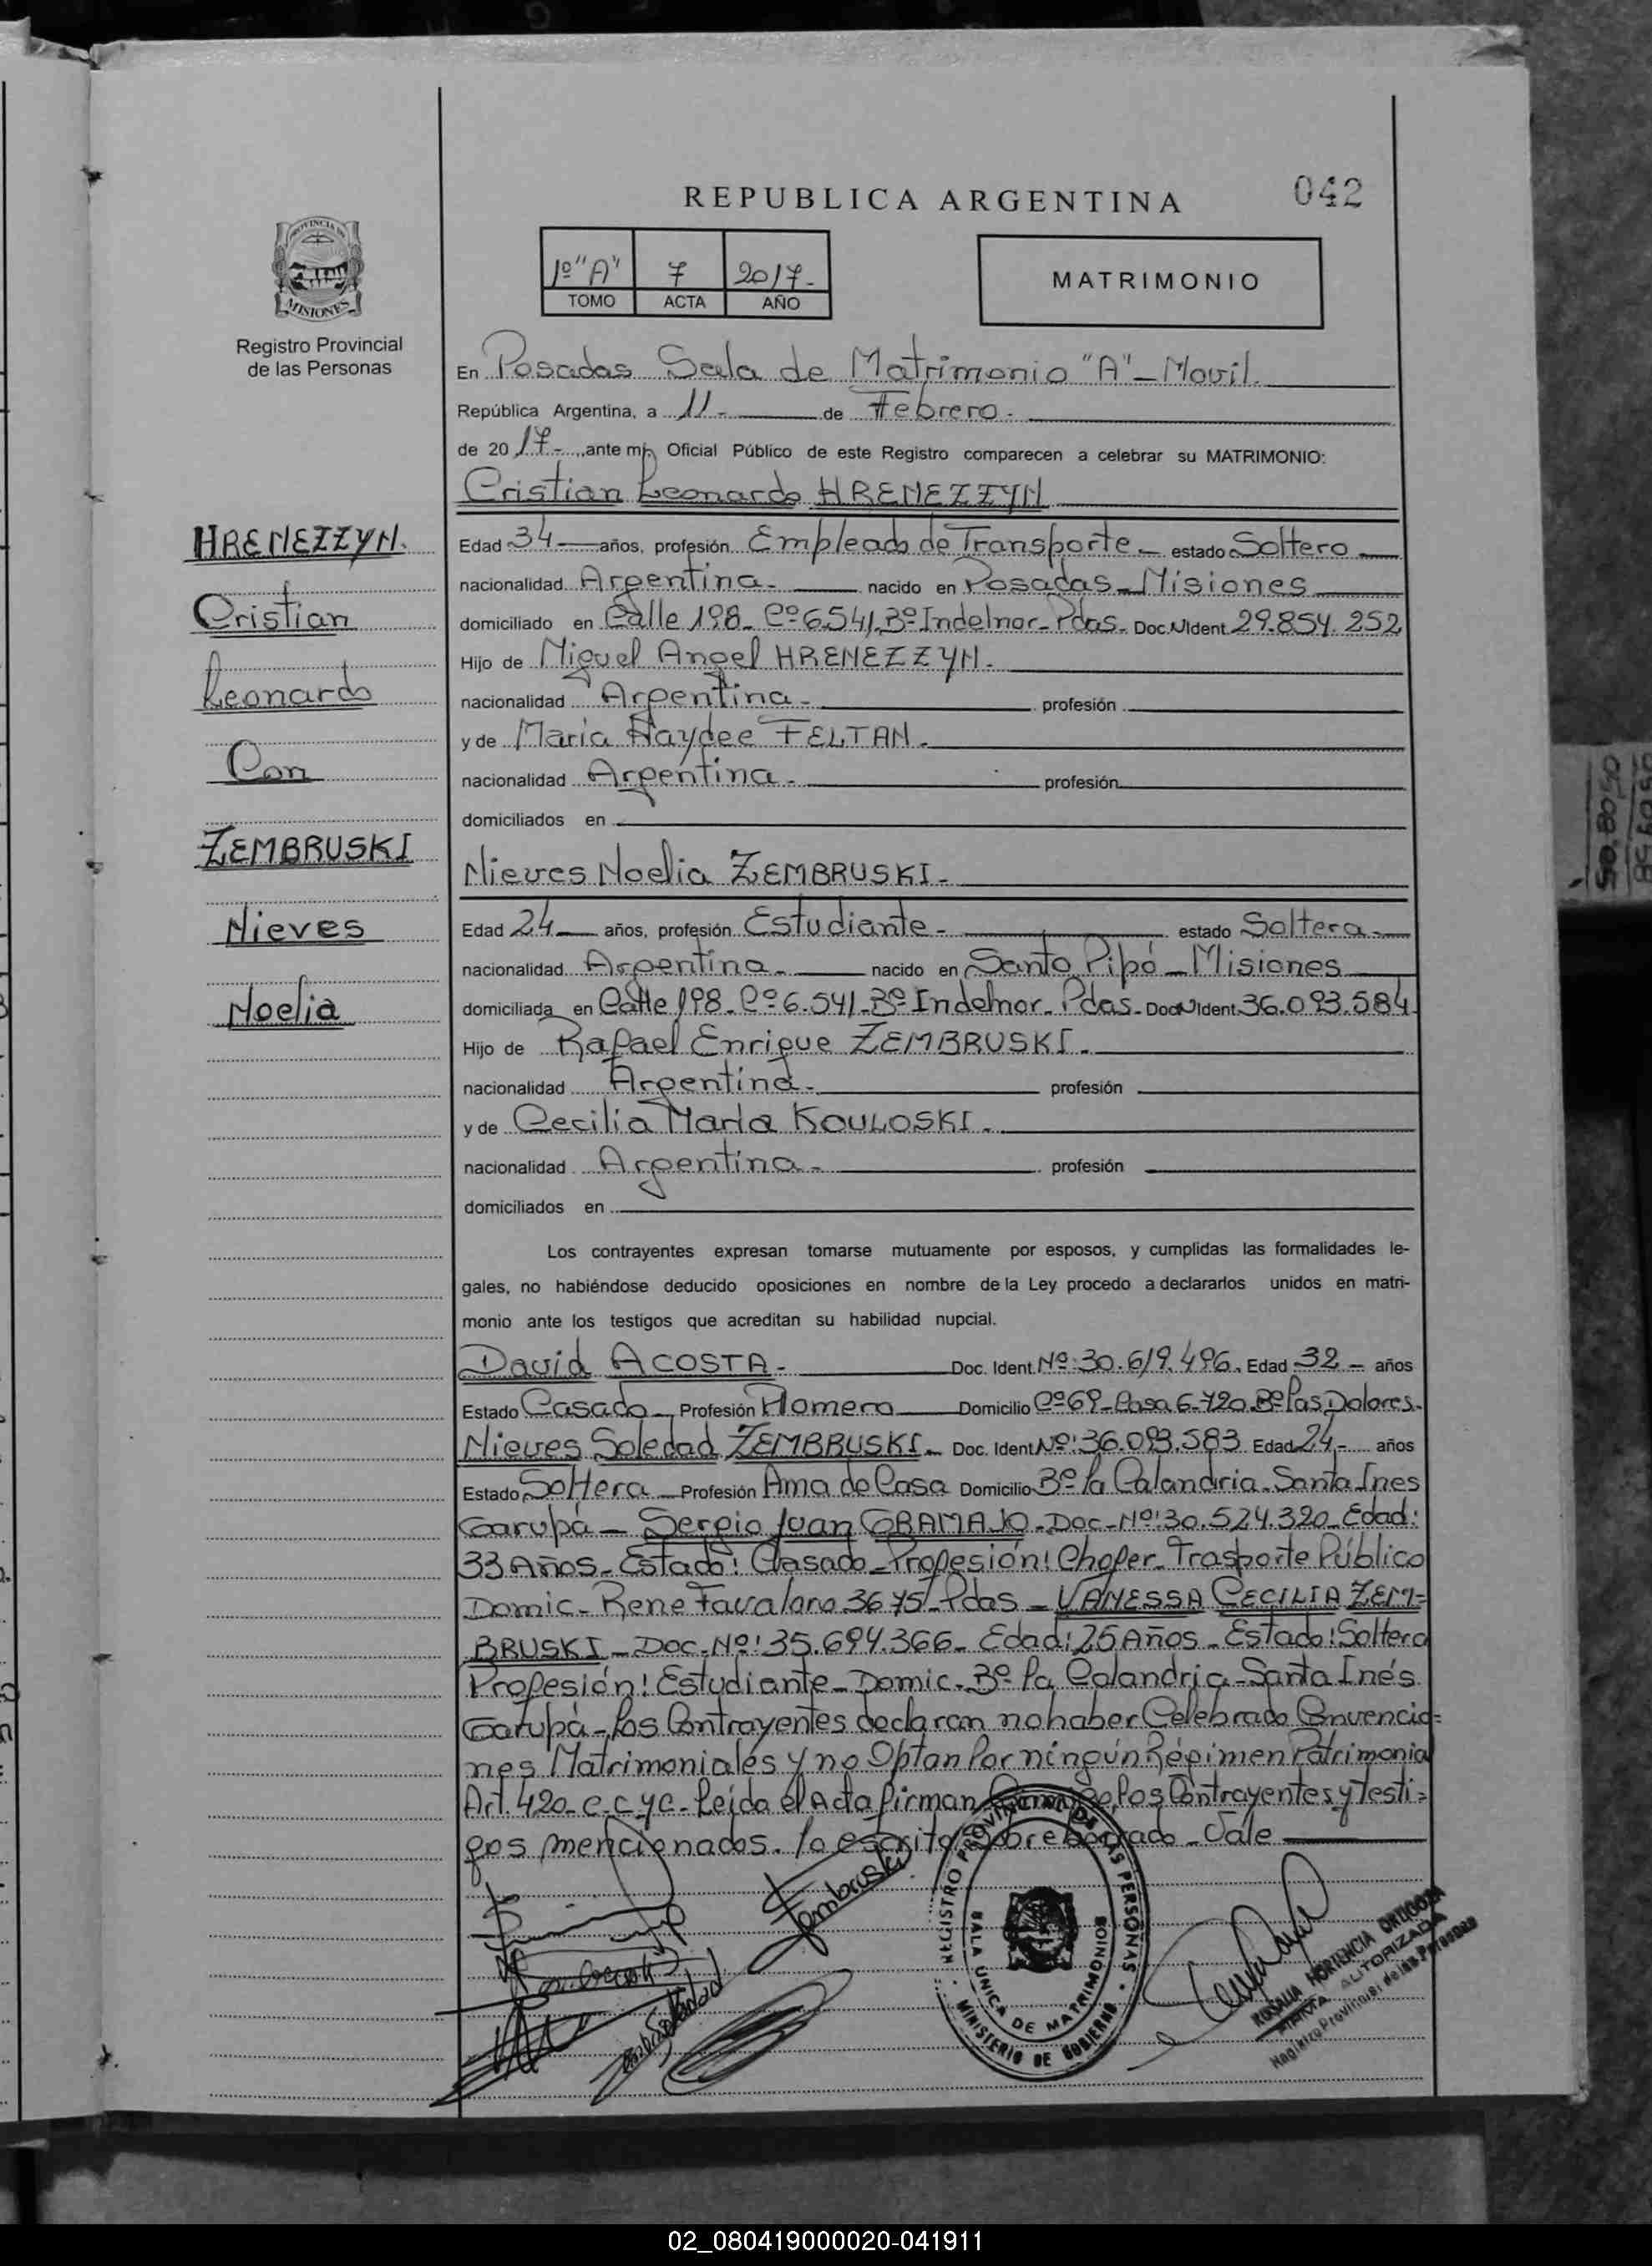 REPUBLICA ARGENTINA
042
1º "A" 7 2017.-
TOMO ACTA AÑO
MATRIMONIO
PROVINCIA DE
MISIONES
Registro Provincial
de las Personas
HRENEZZYN.
Cristian
Leonardo
Con
ZEMBRUSKI
Nieves
Noelia
En Posadas Sala de Matrimonio "A" - Movil.
República Argentina, a 11.- de Febrero.-
de 20 17.- ante mí, Oficial Público de este Registro comparecen a celebrar su MATRIMONIO:
Cristian Leonardo HRENEZZYN
Edad 34 años, profesión Empleado de Transporte.- estado Soltero
nacionalidad Argentina.- nacido en Posadas - Misiones
domiciliado en Calle 198. Cº 6541 Bº Indelmor - Pdas. Doc. Nº Ident. 29.854.252
Hijo de Miguel Angel HRENEZZYN.
nacionalidad Argentina.- profesión
y de Maria Haydee FELTAN.
nacionalidad Argentina.- profesión
domiciliados en
Nieves Noelia ZEMBRUSKI.-
Edad 24 años, profesión Estudiante.- estado Soltera.
nacionalidad Argentina.- nacido en Santo Pipó - Misiones
domiciliada en Calle 198. Cº 6.541 - Bº Indelmor - Pdas. Doc. Nº Ident. 36.093.584
Hijo de Rafael Enrique ZEMBRUSKI.
nacionalidad Argentina.- profesión
y de Cecilia Maria KOULOSKI.
nacionalidad Argentina.- profesión
domiciliados en
Los contrayentes expresan tomarse mutuamente por esposos, y cumplidas las formalidades le-
gales, no habiéndose deducido oposiciones en nombre de la Ley procedo a declararlos unidos en matri-
monio ante los testigos que acreditan su habilidad nupcial.
David ACOSTA.- Doc. Ident. Nº: 30.619.496. Edad 32 - años
Estado Casado - Profesión Plomero Domicilio Cº 69 - Casa 6-720. Bº Las Dolores.
Nieves Soledad ZEMBRUSKI. Doc. Ident. Nº: 36.093.583 Edad 24 - años
Estado Soltera - Profesión Ama de Casa Domicilio Bº La Calandria - Santa Ines
Garupá - Sergio Juan GRAMAJO - Doc - Nº: 30.524.320 - Edad:
33 Años - Estado: Casado - Profesión: Chofer - Trasporte Público
Domic - Rene Favaloro 3675 - Pdas - VANESSA CECILIA ZEM=
BRUSKI - Doc. Nº: 35.694.366 - Edad: 25 Años - Estado: Soltera
Profesión: Estudiante - Domic. Bº La Calandria - Santa Inés
Garupá - Los Contrayentes declaran no haber Celebrado Convencio=
nes Matrimoniales y no Optan Por ningún Régimen Patrimonial
Art. 420 - C.C y C - Leída el Acta firman Conmigo Los Contrayentes y Testi=
gos mencionados. lo escrito sobre borrado - Vale
Zembruski
Soledad
REGISTRO PROVINCIAL DE LAS PERSONAS
SALA UNICA DE MATRIMONIOS
MINISTERIO DE GOBIERNO
ROSALIA HORTENCIA ORTIGOZA
FIRMA AUTORIZADA
Registro Provincial de las Personas
02_080419000020-041911